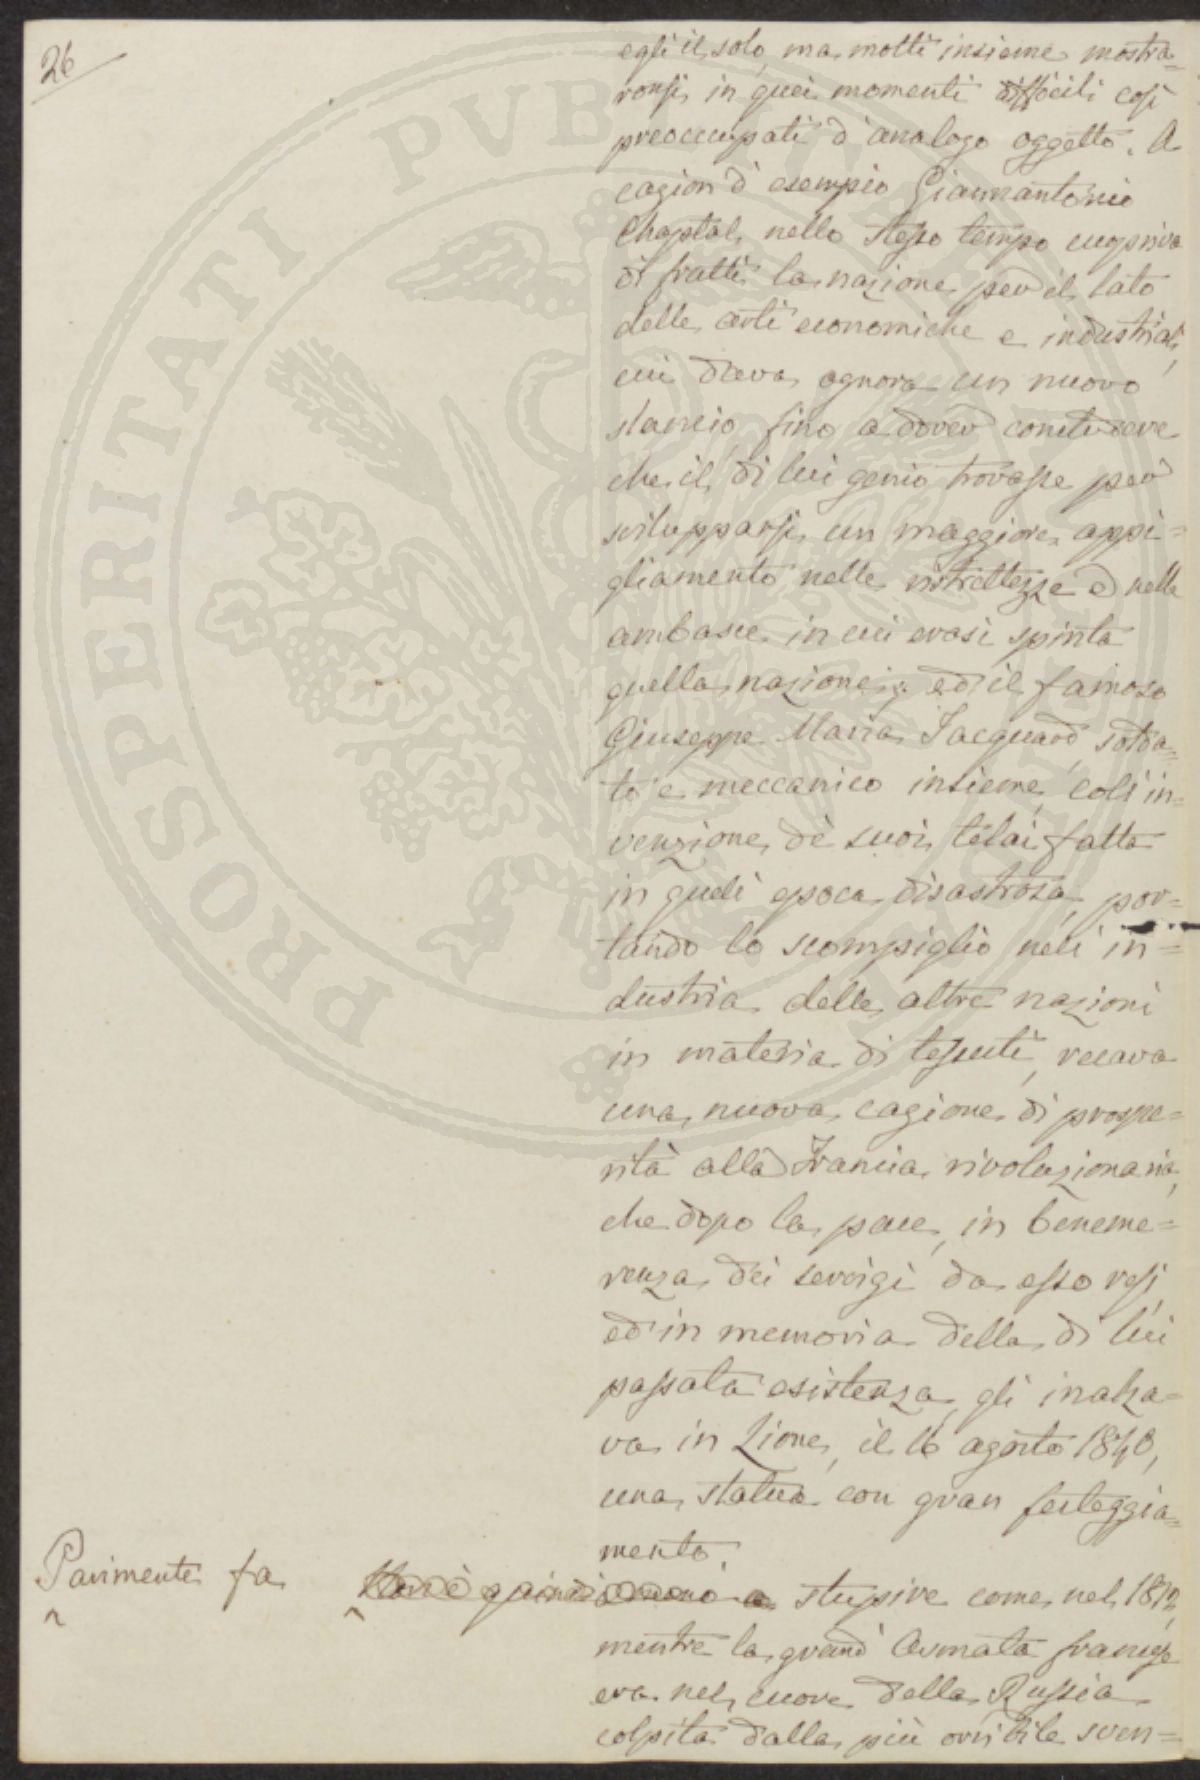 26
egli il solo, ma molti insieme mostra=
ronsi in quei momenti difficili così
preoccupati d'analogo oggetto. A
cagion d'esempio Giannantonio
Chaptal, nello stesso tempo
di fatti la nazione per il lato
delle arti economiche e industriali,
cui dava ognora un nuovo
slancio, fino a dover conchiudere
che il di lui genio trovasse per
svilupparsi un maggiore appi=
gliamento nelle ristrettezze e nelle
ambasce in cui erasi spinta
quella nazione; ed il famoso
Giuseppe Maria Jacquard, solda=
to e meccanico insieme, coll'in=
venzione de' suoi telai fatta
in quell'epoca disastrosa, por=
tando lo scompiglio nell'in=
dustria delle altre nazioni
in materia di tessuti, recava
una nuova cagione di prospe=
rità alla Francia rivoluzionaria,
che dopo la pace, in beneme=
renza dei servigi da esso resi,
ed in memoria della di lui
passata esistenza, gli inalza=
va in Lione, il 16 agosto 1840,
una statua con gran festeggia=
mento.
Parimenti fa
Non è quindi a stupire come nel 1812,
mentre la grand'Armata francese
era nel cuore della Russia
colpita dalla più orribile sven=
PROSPERITATI PUBLICAE